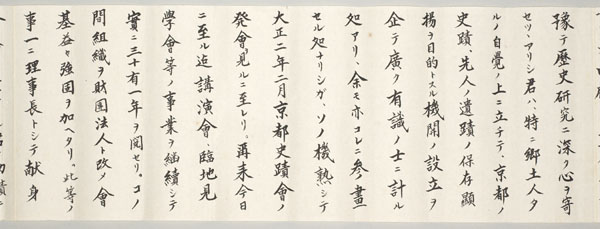 豫テ歴史研究ニ深ク心ヲ寄
セツヽアリシ君ハ、特ニ郷土人タ
ルノ自覺ノ上ニ立チテ、京都ノ
史蹟、先人ノ遺蹟ノ保存顯
揚ヲ目的トスル機関ノ設立ヲ
企テ廣ク有識ノ士ニ計ル
処アリ、余モ亦コレニ参畫
セル処ナリシガ、ソノ機熟シテ
大正二年二月京都史蹟會ノ
發會見ルニ至レリ、再来今日
ニ至ル迄講演會、臨地見
學會等ノ事業ヲ継續シテ
實ニ三十有一年ヲ閲セリ。コノ
間組織ヲ財団法人ト改メ會
基益々強固ヲ加ヘタリ。此等ノ
事一ニ理事長トシテ献身